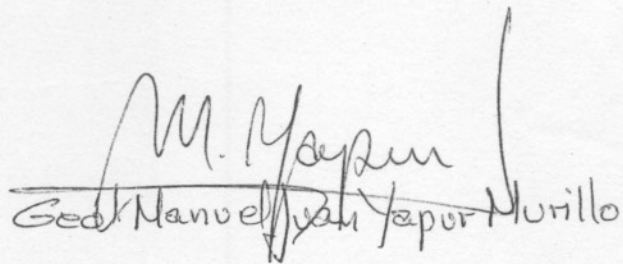 M. Yapur
Geol Manuel Iván Yapur Murillo